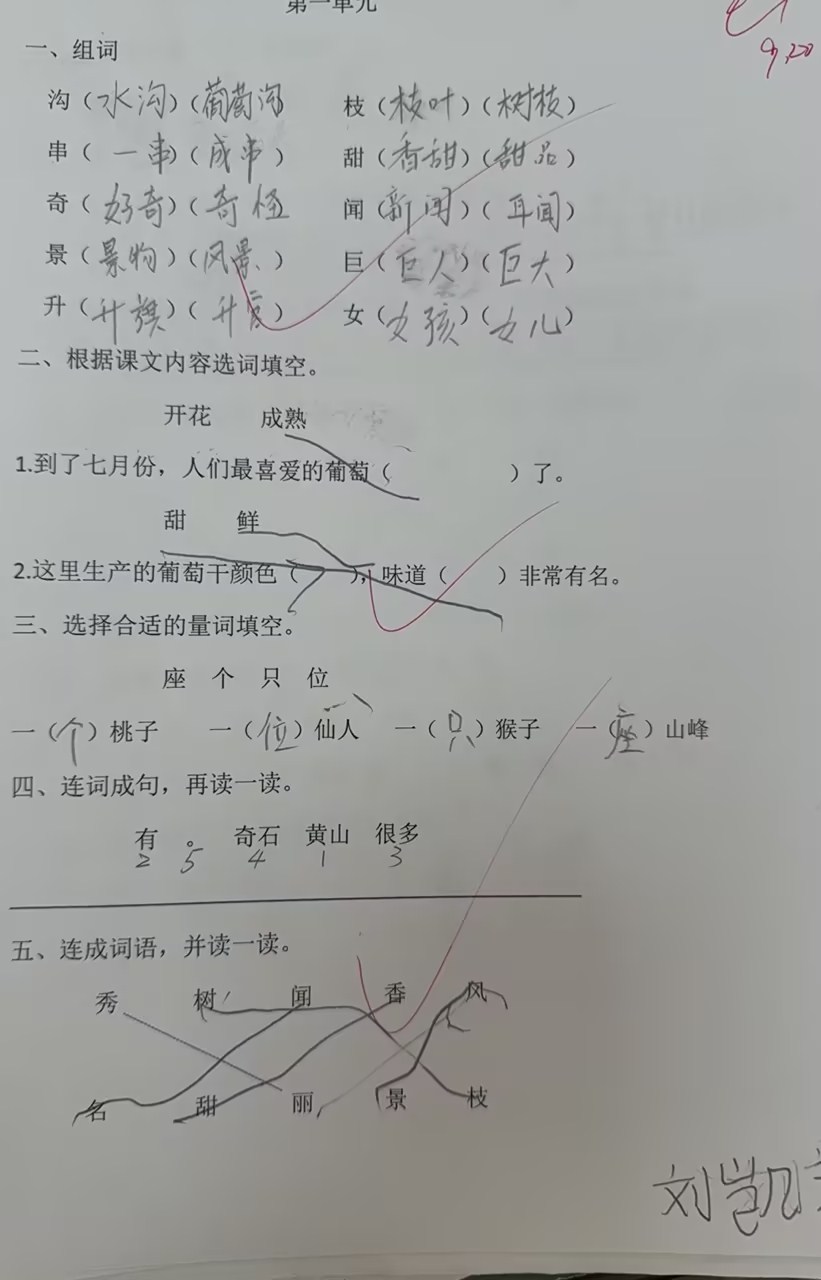 第一单元
9.20
一、组词
沟（水沟）（葡萄沟） 枝（枝叶）（树枝）
串（一串）（成串） 甜（香甜）（甜品）
奇（好奇）（奇怪 闻（新闻）（耳闻）
景（景物）（风景） 巨（巨人）（巨大）
升（升旗）（升官） 女（女孩）（女儿）
二、根据课文内容选词填空。
开花 成熟
1.到了七月份，人们最喜爱的葡萄（ ）了。
甜 鲜
2.这里生产的葡萄干颜色（ ），味道（ ）非常有名。
三、选择合适的量词填空。
座 个 只 位
一（个）桃子 一（位）仙人 一（只）猴子 一（座）山峰
四、连词成句，再读一读。
有 。 奇石 黄山 很多
2 5 4 1 3
五、连成词语，并读一读。
秀 树 闻 香 风
名 甜 丽 景 枝
刘凯